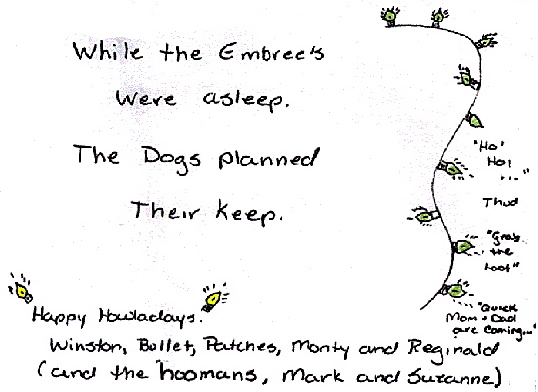 While the Embree's
Were asleep.
The Dogs planned
Their keep.
"Ho!
Ho!
..."
Thud
"Grab
the
loot"
"Quick
Mom + Dad
are coming..."
Happy Howladays.
Winston, Bullet, Patches, Monty and Reginald
(and the hoomans, Mark and Suzanne)